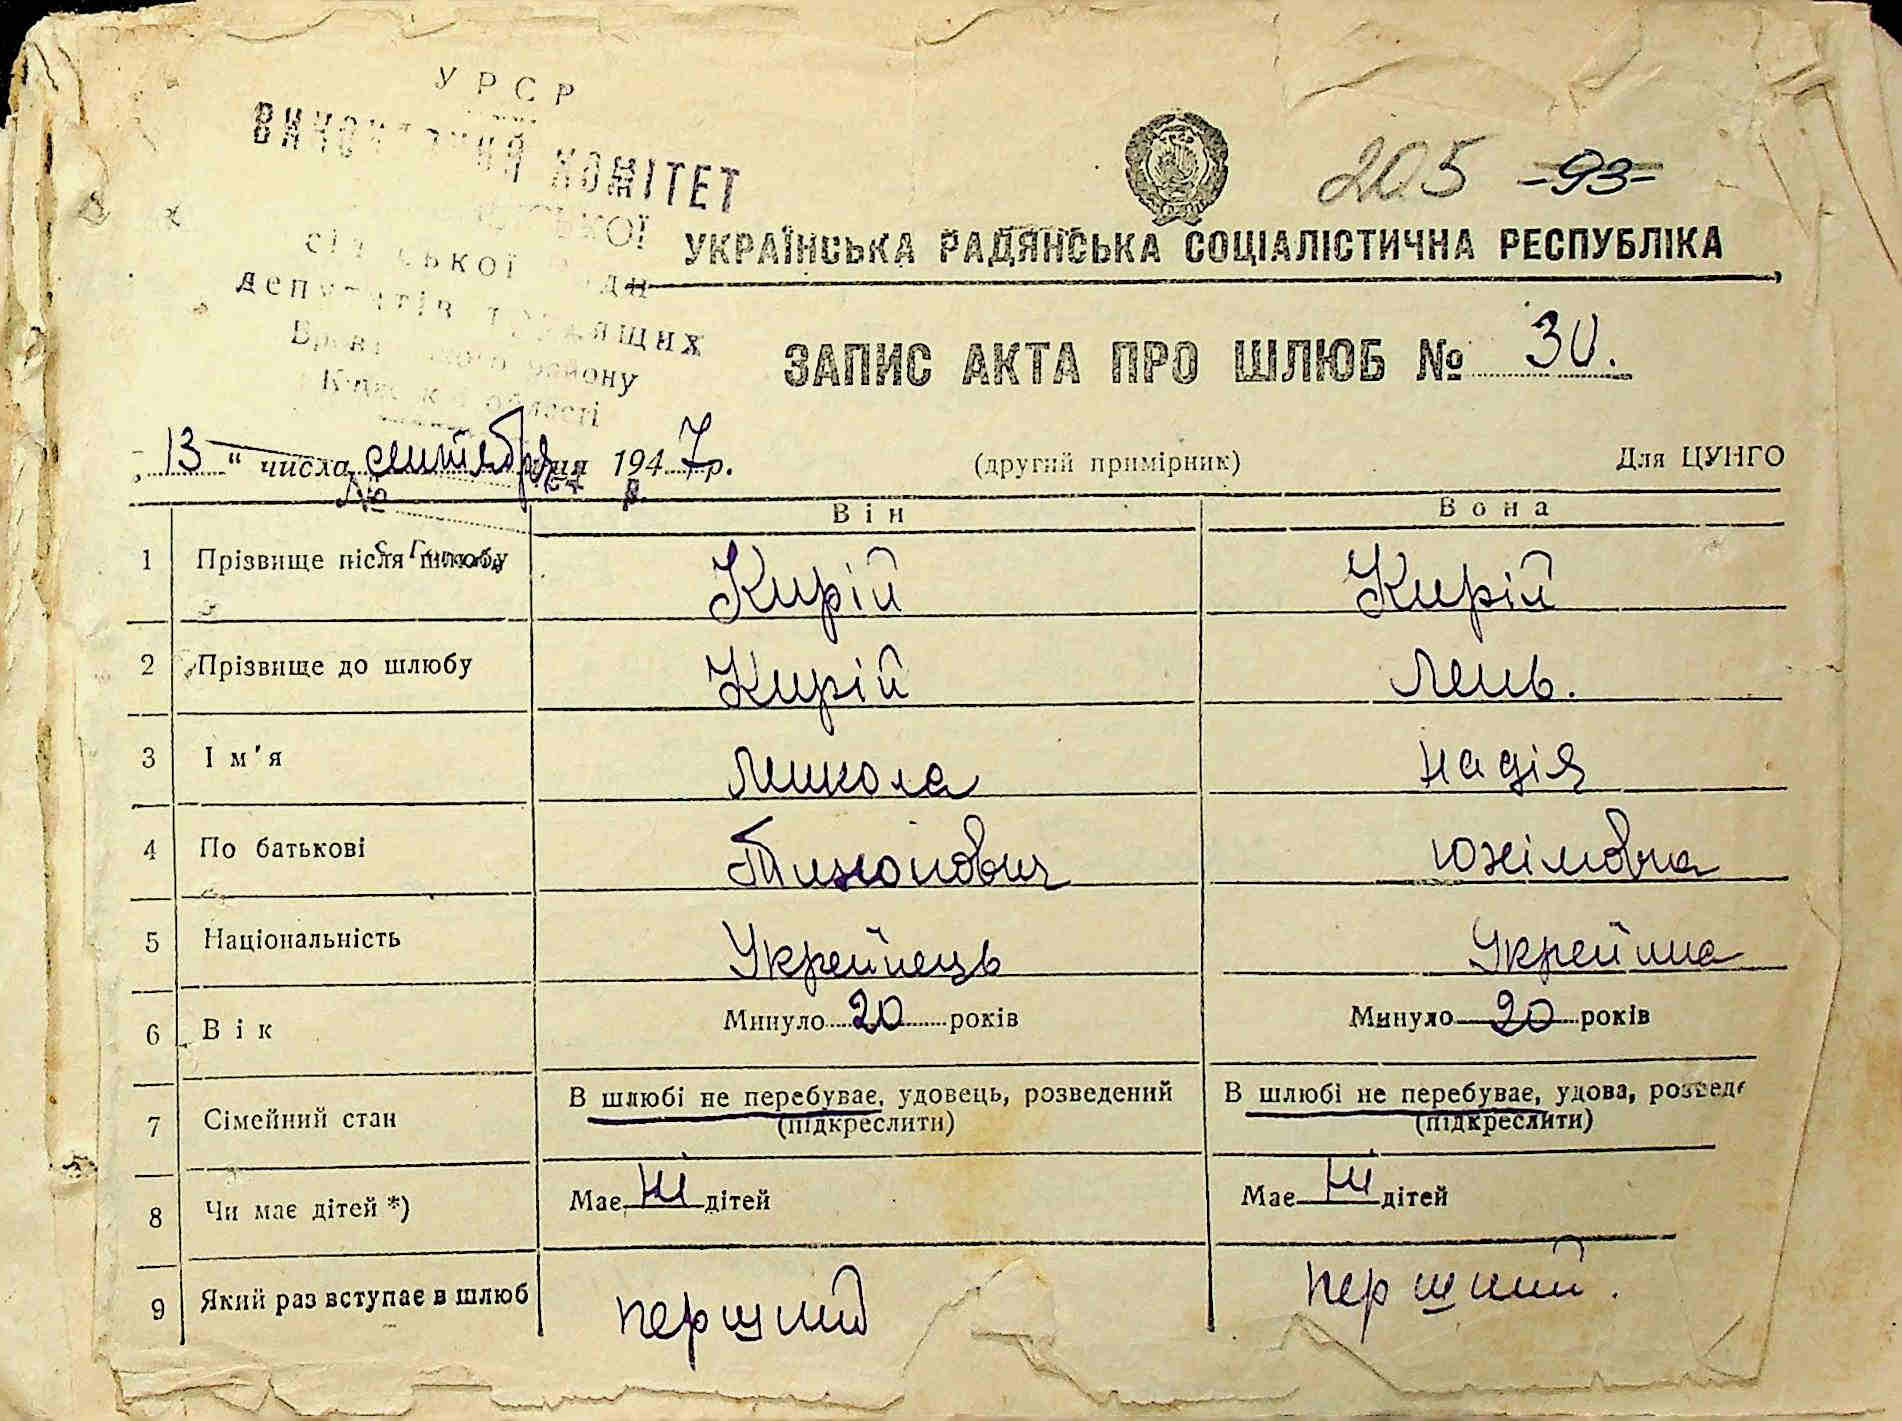 УРСР
ВИКОНАВЧИЙ КОМІТЕТ
сільської ради
депутатів трудящих
району
області
205 -93-
УКРАЇНСЬКА РАДЯНСЬКА СОЦІАЛІСТИЧНА РЕСПУБЛІКА
ЗАПИС АКТА ПРО ШЛЮБ № 30.
„13“ числа сентября 1947 р. (другий примірник) Для ЦУНГО
№
Він Вона
1 Прізвище після шлюбу Кирій Кирій
2 Прізвище до шлюбу Кирій Лень.
3 Ім'я Микола Надія
4 По батькові Тихонович Юхімовна
5 Національність Украйнець Украйнка
6 Вік Минуло 20 років Минуло 20 років
7 Сімейний стан В шлюбі не перебуває, удовець, розведений В шлюбі не перебуває, удова, розведе
(підкреслити) (підкреслити)
8 Чи має дітей *) Має ні дітей Має ні дітей
9 Який раз вступає в шлюб перший перший.